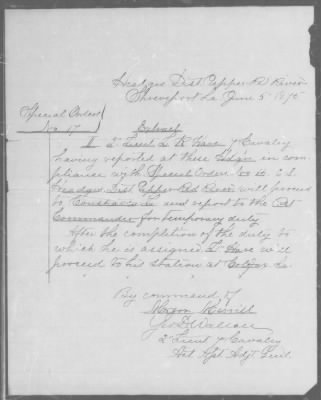 Headqrs Dist Upper Rd River
Shreveport La June 5 1875
Special Orders
No. 17
Extract
II 2d Lieut L. R. Hare 7 Cavalry
having reported at these Hdqrs in com-
pliance with Special Orders C.S.
Headqrs Dist Upper Red River will proceed
to La and report to the Post
Commander for temporary duty
After the completion of the duty to
which he is assigned Lt Hare will
proceed to his station at Colfax La.
By command of
Major Merrill
Geo D Wallace
2d Lieut 7 Cavalry
Act Asst Adjt Genl.